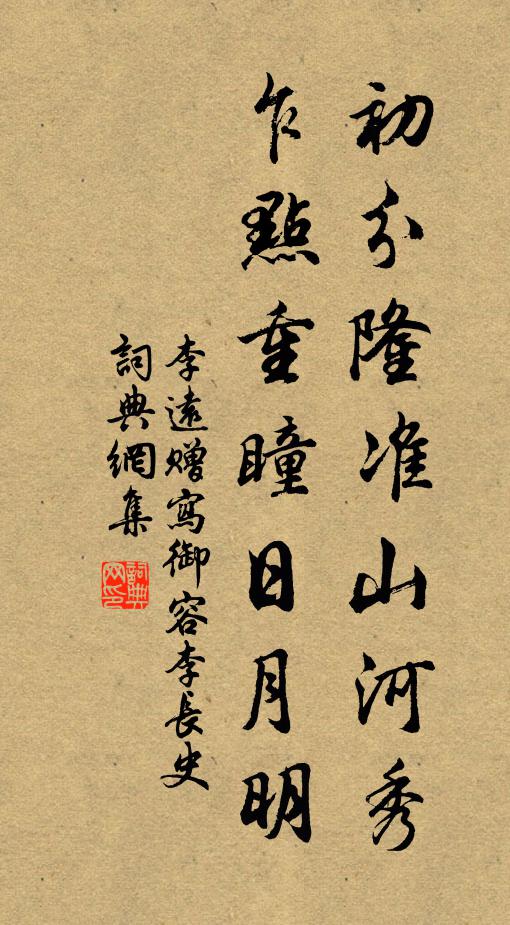 初分隆准山河秀
乍點重瞳日月明
李遠贈寫御容李長史
詞典網集
詞典網印